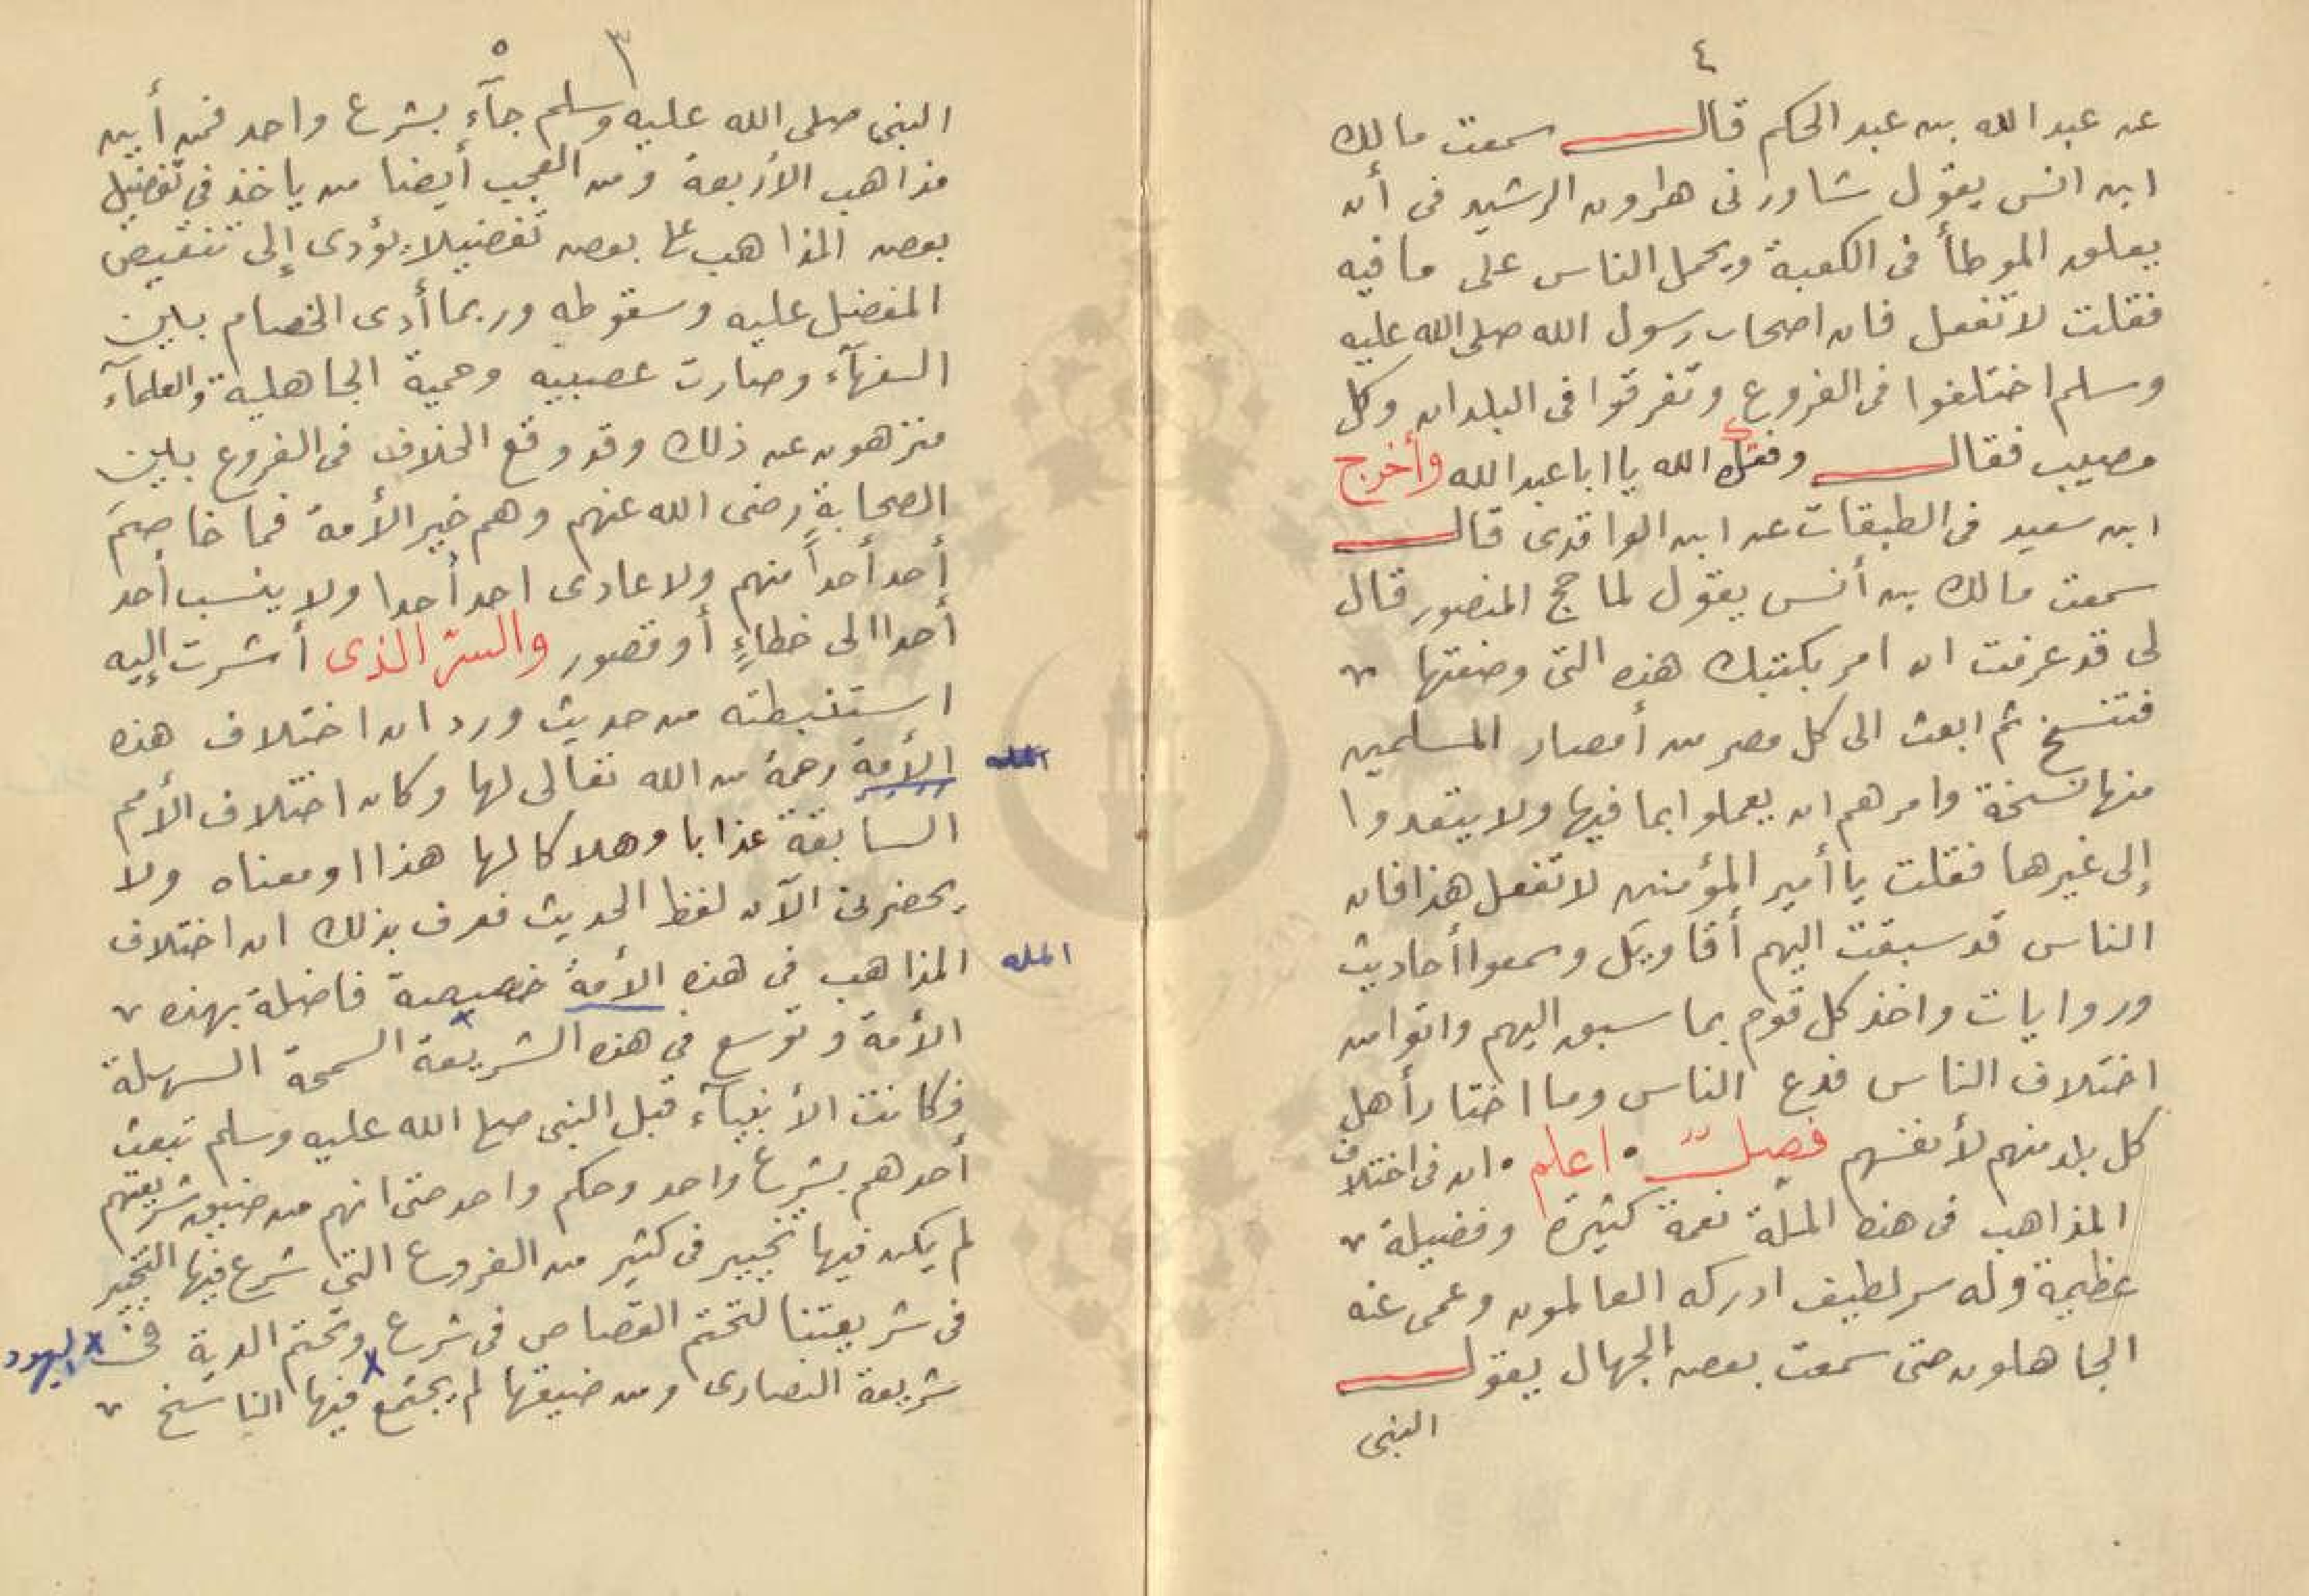 ٤
عن عبد الله بن عبد الحكم قال سمعت مالك
ابن انس يقول شاورنى هارون الرشيد فى أن
يعلق الموطأ فى الكعبة ويحمل الناس على ما فيه
فقلت لا تفعل فان اصحاب رسول الله صلى الله عليه
وسلم اختلفوا فى الفروع وتفرقوا فى البلدان وكل
مصيب فقال وفقك الله يا ابا عبد الله وأخرج
ابن سعيد فى الطبقات عن ابن الواقدى قال
سمعت مالك بن أنس يقول لما حج المنصور قال
لى قد عرفت ان امر بكتبك هذه التى وضعتها
فتنسخ ثم ابعث الى كل مصر من أمصار المسلمين
منها نسخة وامرهم ان يعملوا بما فيها ولا يتعدوا
إلى غيرها فقلت يا أمير المؤمنين لا تفعل هذا فان
الناس قد سبقت اليهم أقاويل وسمعوا أحاديث
وروايات واخذ كل قوم بما سبق اليهم واتوا من
اختلاف الناس فدع الناس وما اختار أهل
كل بلد منهم لأنفسهم فصل اعلم ان فى اختلاف
المذاهب فى هذه الملّة نعمة كثيرة وفضيلة
عظيمة وله سر لطيف ادركه العالمون وعمى عنه
الجاهلون حتى سمعت بعض الجهال يقول
النبى
٥
٣
النبى صلى الله عليه وسلم جآء بشرع واحد فمن أين
مذاهب الأربعة ومن العجب أيضا من ياخذ فى تفضيل
بعض المذاهب على بعض تفضيلا يؤدى إلى تنقيص
المفضل عليه وسقوطه وربما أدى الخصام بين
السفهآء وصارت عصبيه وحمية الجاهلية والعلمآء
منزهون عن ذلك وقد وقع الخلاف فى الفروع بين
الصحابة رضى الله عنهم وهم خير الأمة فما خاصم
أحد أحداً منهم ولا عادى احد أحدا ولا ينسب أحد
أحدا الى خطاءٍ أو قصور والسرّ الذى أشرت إليه
استنبطته من حديث ورد ان اختلاف هذه
الأمة رحمة من الله تعالى لها وكان اختلاف الأمم
المله
السابقة عذابا وهلاكا لها هذا او معناه ولا
يحضرنى الآن لفظ الحديث فعرف بذلك ان اختلاف
المذاهب فى هذه الأمة خصيصة فاضلة بهذه
المله
الأمة وتوسع في هذه الشريعة السمحة السهلة
فكانت الأنبيآء قبل النبى صلى الله عليه وسلم تبعث
أحدهم بشرع واحد وحكم واحد حتى انهم من ضيق شريعتهم
لم يكن فيها تخيير فى كثير من الفروع التى شرع فيها التخير
فى شريعتنا لتحتم القصاص فى شرع وتحتم الدية فى
اليهود
شريعة النصارى ومن ضيقها لم يجتمع فيها الناسخ